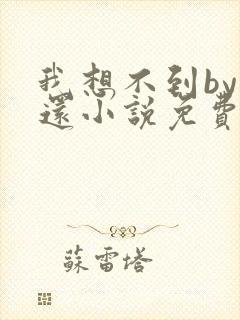 我想不到by
還小說免費
蘇雷塔